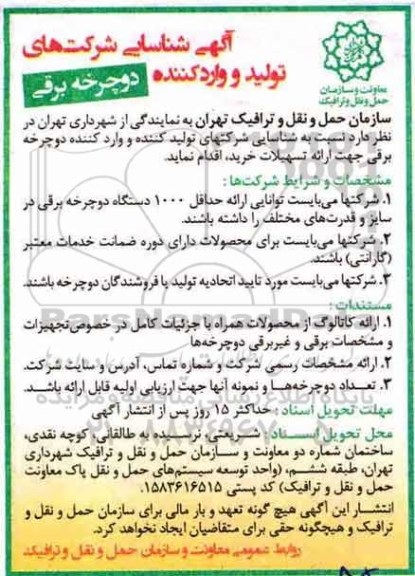 آگهی شناسایی شرکت‌های
تولید و واردکننده دوچرخه برقی
معاونت و سازمان
حمل و نقل و ترافیک
سازمان حمل و نقل و ترافیک تهران به نمایندگی از شهرداری تهران در
نظر دارد نسبت به شناسایی شرکتهای تولید کننده و وارد کننده دوچرخه
برقی جهت ارائه تسهیلات خرید، اقدام نماید.
مشخصات و شرایط شرکت‌ها :
۱. شرکتها می‌بایست توانایی ارائه حداقل ۱۰۰۰ دستگاه دوچرخه برقی در
سایز و قدرت‌های مختلف را داشته باشند.
۲. شرکتها می‌بایست برای محصولات دارای دوره ضمانت خدمات معتبر
(گارانتی) باشند.
۳. شرکتها می‌بایست مورد تایید اتحادیه تولید یا فروشندگان دوچرخه باشند.
مستندات :
۱. ارائه کاتالوگ از محصولات همراه با جزئیات کامل در خصوص تجهیزات
و مشخصات برقی و غیربرقی دوچرخه‌ها
۲. ارائه مشخصات رسمی شرکت و شماره تماس، آدرس و سایت شرکت.
۳. تعداد دوچرخه‌ها و نمونه آنها جهت ارزیابی اولیه قابل ارائه باشد.
مهلت تحویل اسناد : حداکثر ۱۵ روز پس از انتشار آگهی
محل تحویل اسناد : شریعتی، نرسیده به طالقانی، کوچه نقدی،
ساختمان شماره دو معاونت و سازمان حمل و نقل و ترافیک شهرداری
تهران، طبقه ششم، (واحد توسعه سیستم‌های حمل و نقل پاک معاونت
حمل و نقل و ترافیک) کد پستی ۱۵۸۳۶۱۶۵۱۵.
انتشار این آگهی هیچ گونه تعهد و بار مالی برای سازمان حمل و نقل و
ترافیک و هیچگونه حقی برای متقاضیان ایجاد نخواهد کرد.
روابط عمومی معاونت و سازمان حمل و نقل و ترافیک
ParsNamadData